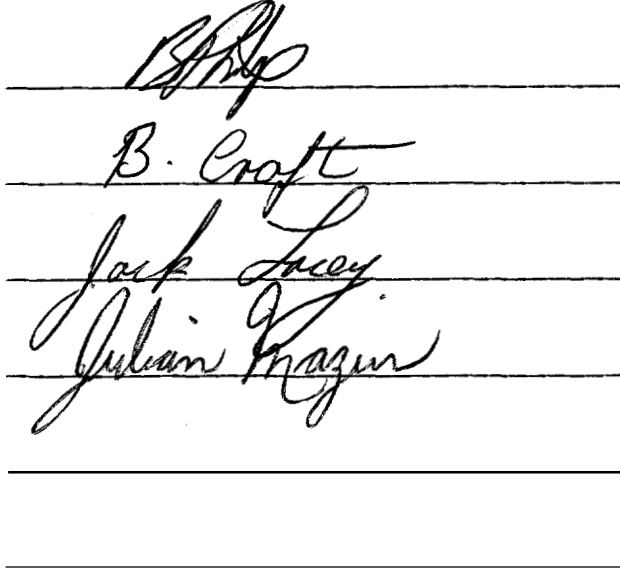 B. Croft
Jack Lacey
Julian Mazur